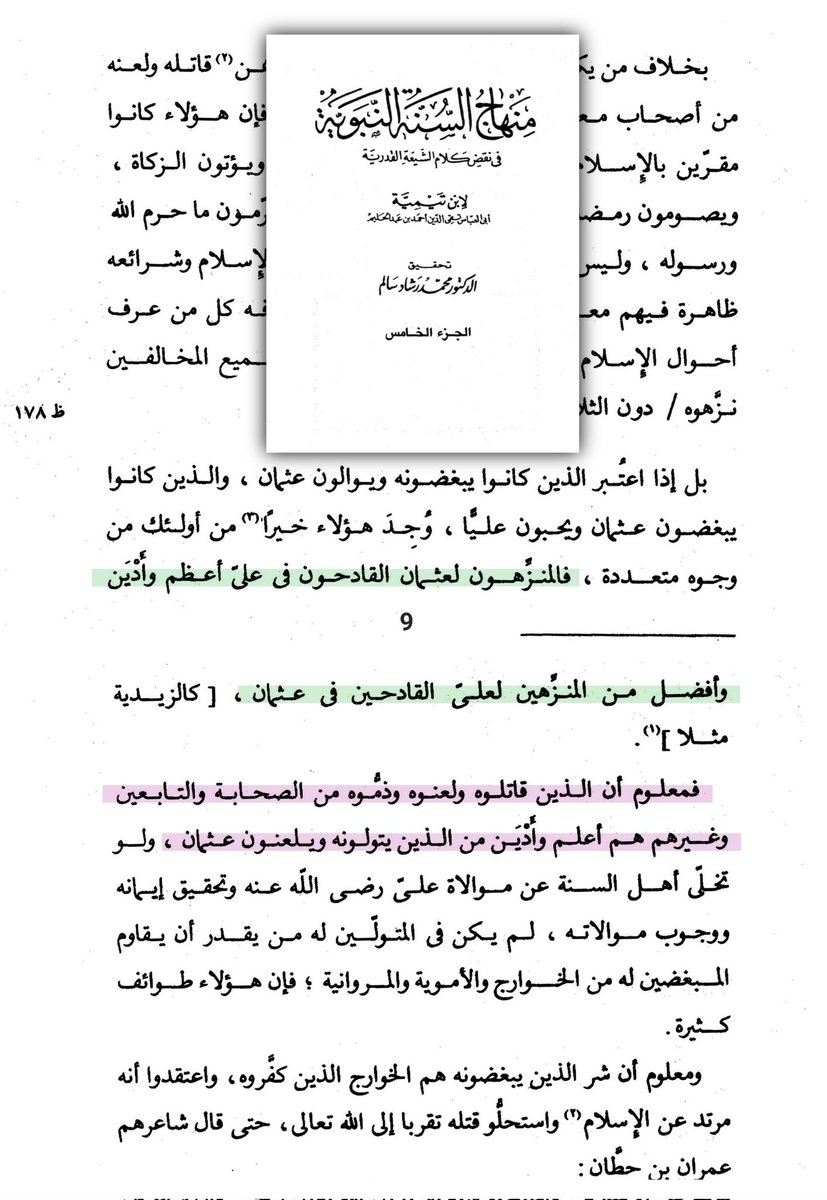 بخلاف من يك
عن(٢) قاتله ولعنه
من أصحاب مع
فإن هؤلاء كانوا
مقرّين بالإسلا
ويؤتون الزكاة ،
ويصومون رمض
رّمون ما حرم الله
ورسوله ، وليس
لإسلام وشرائعه
ظاهرة فيهم مع
فه كل من عرف
أحوال الإسلام
ميع المخالفين
نزَّهوه / دون الثلا
ظ ١٧٨
منهاج السنة النبوية
في نقض كلام الشيعة القدرية
لابن تيمية
أبي العباس تقي الدين أحمد بن عبد الحليم
تحقيق
الدكتور محمد رشاد سالم
الجزء الخامس
بل إذا اعتُبر الذين كانوا يبغضونه ويوالون عثمان ، والذين كانوا
يبغضون عثمان ويحبون عليًّا ، وُجِدَ هؤلاء خيرًا(٣) من أولئك من
وجوه متعددة ، فالمنزِّهون لعثمان القادحون فى علىّ أعظم وأَدْيَن
9
وأفضل من المنزِّهين لعلىّ القادحين فى عثمان ، [ كالزيدية
مثلا ](١).
فمعلوم أن الذين قاتلوه ولعنوه وذمُّوه من الصحابة والتابعين
وغيرهم هم أعلم وأَدْيَن من الذين يتولونه ويلعنون عثمان ، ولو
تخلّى أهل السنة عن موالاة علىّ رضى اللّه عنه وتحقيق إيمانه
ووجوب موالاته ، لم يكن فى المتولّين له من يقدر أن يقاوم
المبغضين له من الخوارج والأموية والمروانية ؛ فإن هؤلاء طوائف
كثيرة .
ومعلوم أن شر الذين يبغضونه هم الخوارج الذين كفَّروه، واعتقدوا أنه
مرتد عن الإسلام(٢) واستحلُّو قتله تقربا إلى الله تعالى، حتى قال شاعرهم
عمران بن حطَّان :